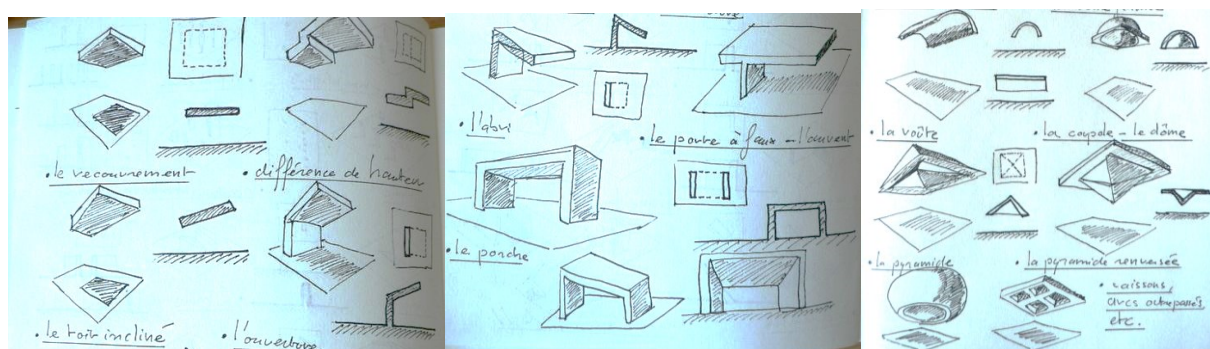 • le recouvrement
• différence de hauteur
• le toit incliné
• l'ouverture
• l'abri
• le porte à faux - l'auvent
• le porche
• la voûte
• la coupole - le dôme
• la pyramide
• la pyramide renversée
• caissons,
arcs outrepassés,
etc.